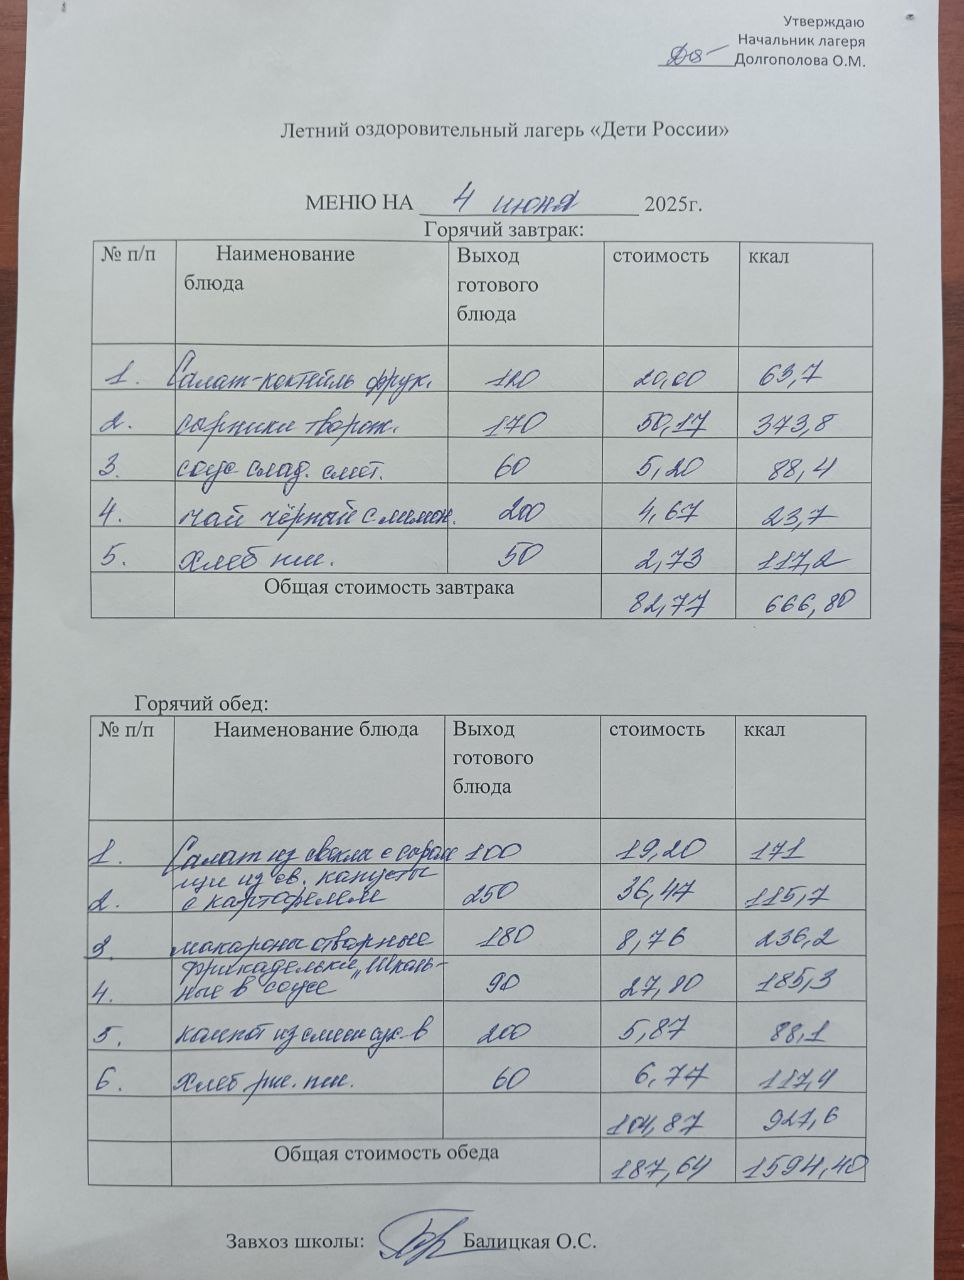 Утверждаю
Начальник лагеря
Долгополова О.М.
Летний оздоровительный лагерь «Дети России»
МЕНЮ НА 4 июня 2025г.
Горячий завтрак:
№ п/п Наименование блюда Выход готового блюда стоимость ккал
1. Салат-коктейль фрук. 120 20,00 63,7
2. сырники творож. 170 50,17 373,8
3. соус слад. смет. 60 5,20 88,4
4. чай чёрный с лимон. 200 4,67 23,7
5. Хлеб пш. 50 2,73 117,2
Общая стоимость завтрака 82,77 666,80
Горячий обед:
№ п/п Наименование блюда Выход готового блюда стоимость ккал
1. Салат из свеклы с сыром 100 19,20 171
2. щи из св. капусты с картофелем 250 36,47 115,7
3. макароны отварные 180 8,76 236,2
4. фрикадельки „Школьные в соусе 90 27,80 185,3
5. компот из смеси сух. в 200 5,87 88,1
6. Хлеб рж. пш. 60 6,77 117,4
104,87 927,6
Общая стоимость обеда 187,64 1594,40
Завхоз школы: Балицкая О.С.